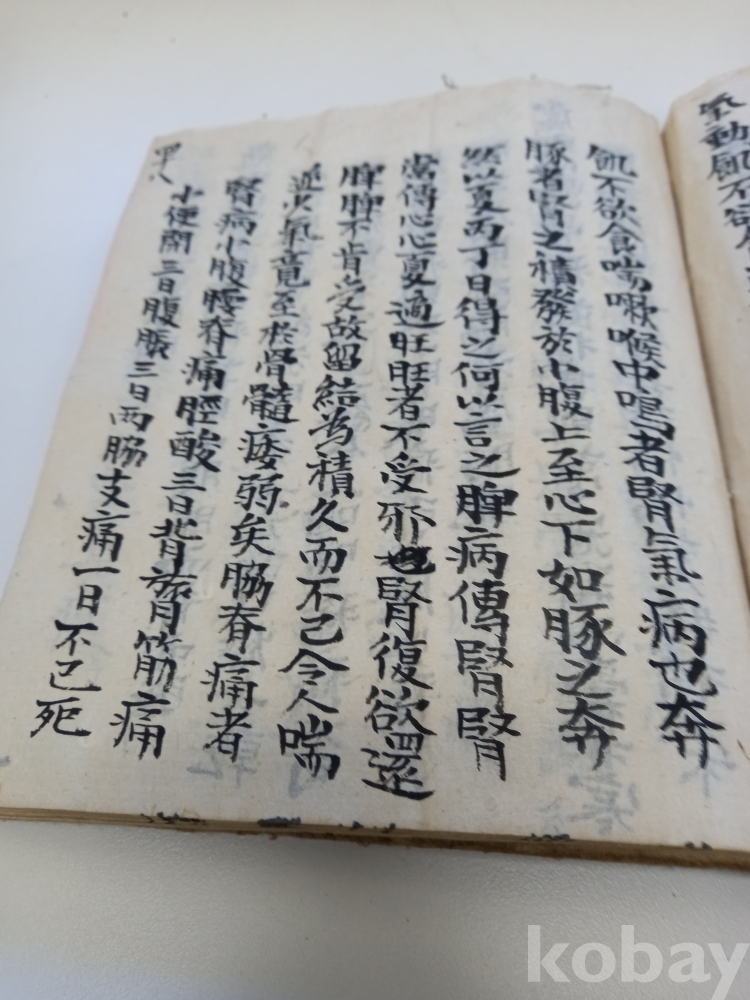 氣動飢不欲
飢不欲食喘嗽喉中鳴者腎氣病也奔
豚者腎之積發於小腹上至心下如豚之奔
然以夏丙丁日得之何以言之脾病傳腎腎
當傳心心夏適旺旺者不受邪也腎復欲還
脾脾不肯受故留結為積久而不已令人喘
逆火氣竟至於骨髓痿弱矣脇脊痛者
腎病小腹腰脊痛脛酸三日背膂筋痛
小便閉三日腹脹三日兩脇支痛一日不已死
罒八
kobay